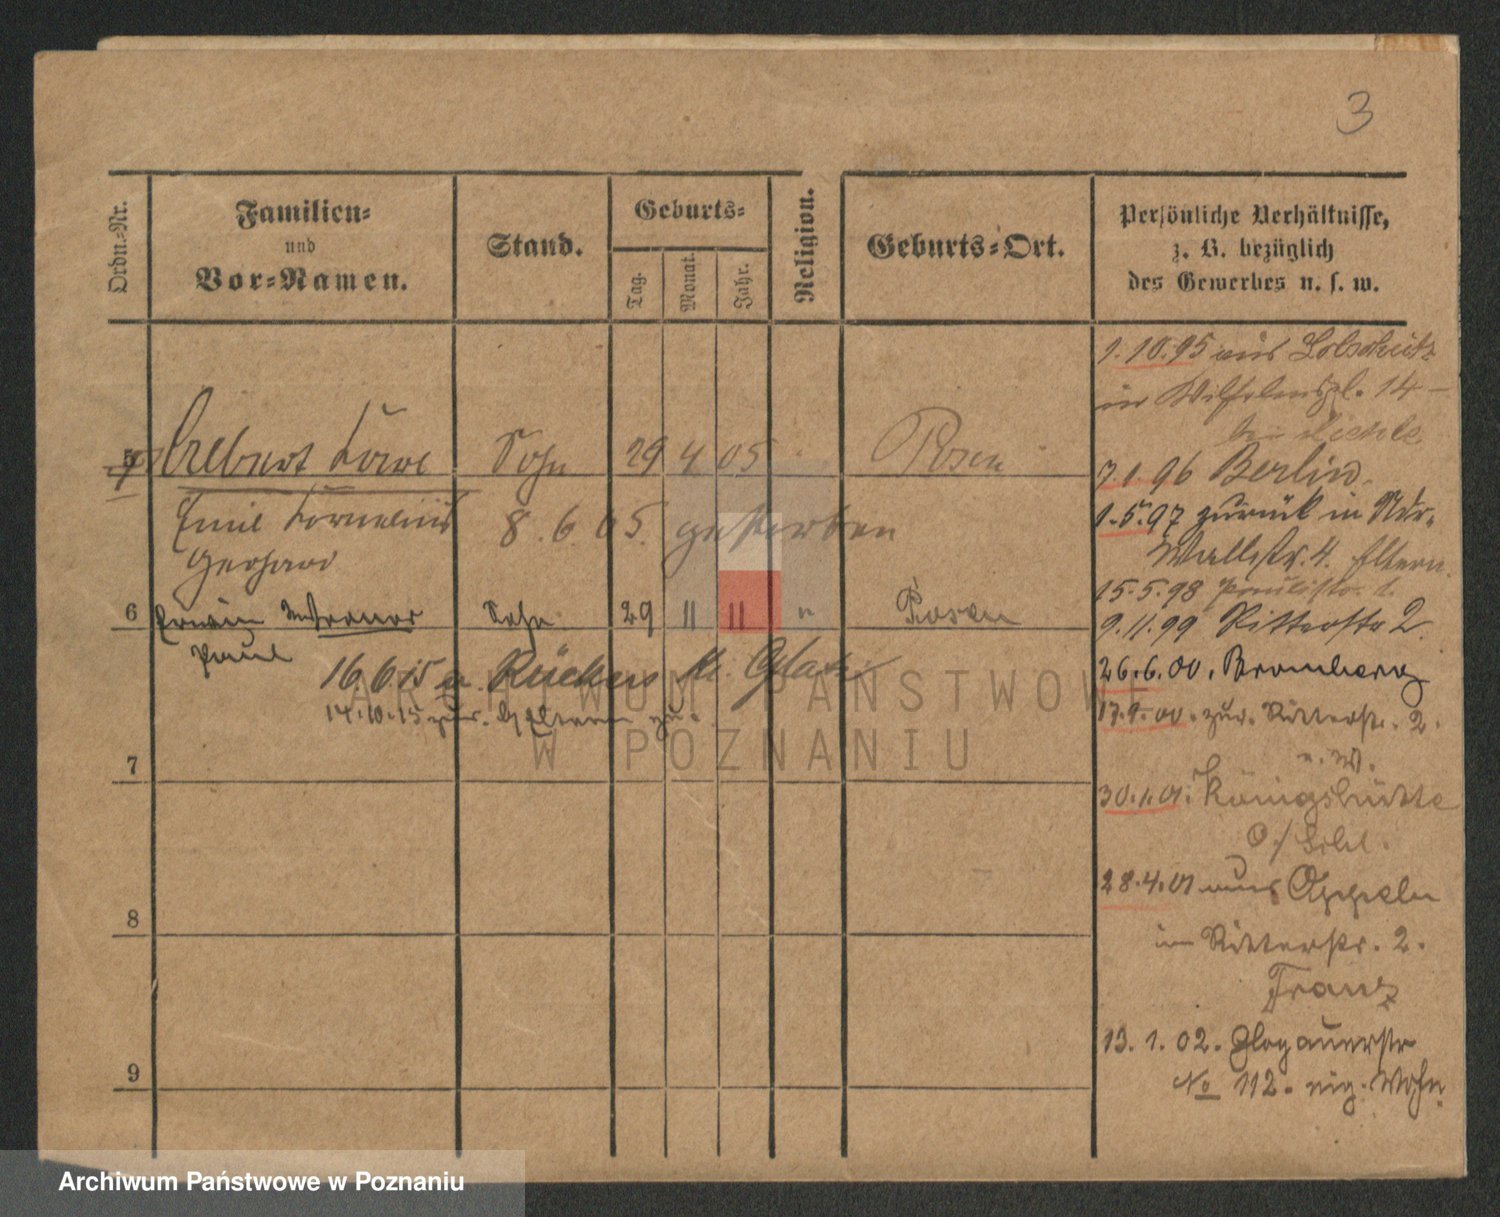 3
Ordn.-Nr.
Familien-
und
Vor-Namen.
Stand.
Geburts-
Tag.
Monat.
Jahr.
Religion.
Geburts-Ort.
Persönliche Verhältnisse,
z. B. bezüglich
des Gewerbes u. s. w.
Albert Sohn 29 4 05 Posen
Emil Kornelius 8.6.05. gestorben
Gerhard
6 Erwin Sohn 29 11 11 " Posen
Paul
16.6.15 n. Rückers Kr. Glatz
14.10.15 zur. Eltern zu.
7
8
9
1.10.95 aus
in Wilhelmspl. 14 –
bei
7.1.96 Berlin.
1.5.97 zurück in
Wallstr. 4. Eltern.
15.5.98 Paulistr.
9.11.99 Ritterstr 2.
26.6.00. Bromberg
17.9.00. zur. Ritterstr. 2.
u. W.
30.1.01. Königshütte
O/Schl.
28.4.01 aus Oppeln
in Ritterstr. 2.
Franz
13. 1. 02. Glogauerstr
No 112. eig. Wohn.
ARCHIWUM PAŃSTWOWE
W POZNANIU
Archiwum Państwowe w Poznaniu